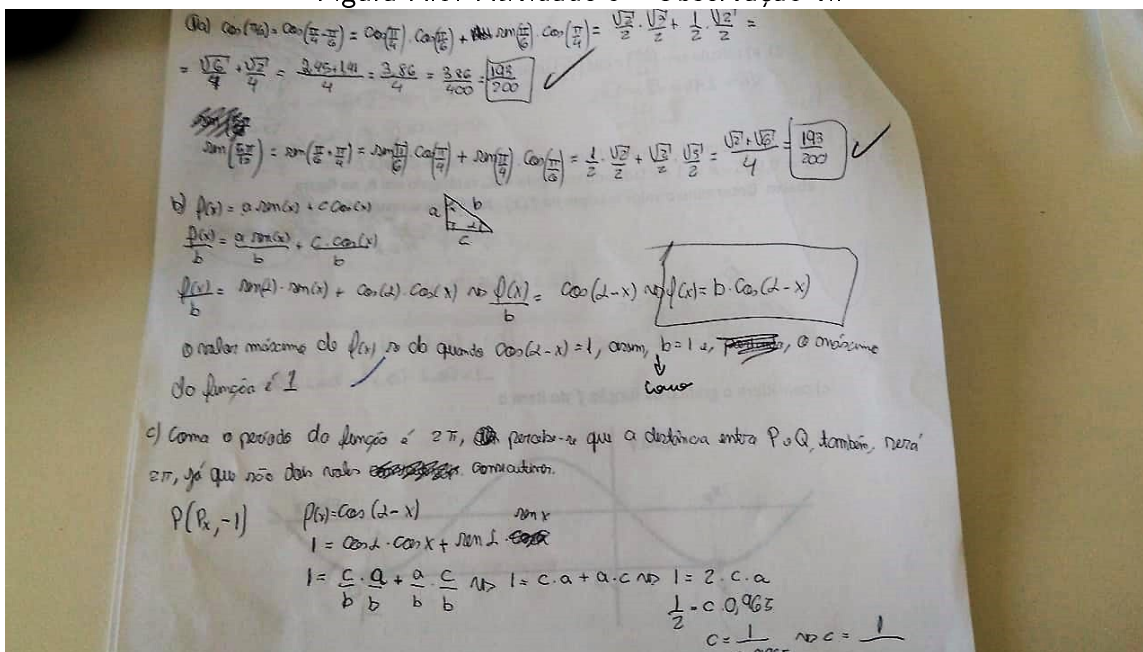 1)a) cos(π/12) = cos(π/4 - π/6) = cos(π/4) . cos(π/6) + sen(π/6) . cos(π/4) = √3/2 . √2/2 + 1/2 . √2/2 =
= √6/4 + √2/4 = 2,45+1,41/4 = 3,86/4 = 386/400 = 193/200 ✓
sen(5π/12) = sen(π/6 + π/4) = sen(π/6) . cos(π/4) + sen(π/4) . cos(π/6) = 1/2 . √2/2 + √2/2 . √3/2 = √2+√6/4 = 193/200 ✓
b) f(x) = a sen(x) + c cos(x) a b c
f(x)/b = a sen(x)/b + c . cos(x)/b
f(x)/b = sen(α) . sen(x) + cos(α) . cos(x) ⇝ f(x)/b = cos(α-x) ⇝ f(x) = b . cos(α-x)
o valor máximo do f(x) se dá quando cos(α-x) = 1, assim, b=1 e, o máximo
da função é 1
c) Como o período da função é 2π, percebe-se que a distância entre P e Q, também, será
2π, já que são dois vales consecutivos.
P(Px, -1) f(x) = cos(α-x) sen x
1 = cos α . cos x + sen α .
1 = c/b . a/b + a/b . c/b ⇝ 1 = c . a + a . c ⇝ 1 = 2 . c . a
1/2 = c . 0,965
c = 1 ⇝ c = 1